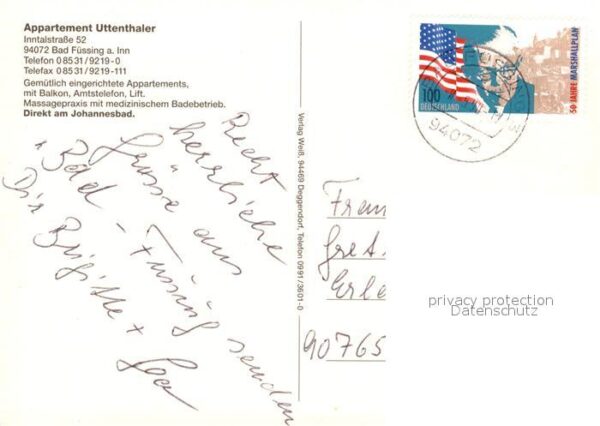 Appartement Uttenthaler
Inntalstraße 52
94072 Bad Füssing a. Inn
Telefon 0 85 31 / 92 19 - 0
Telefax 0 85 31 / 92 19 - 111
Gemütlich eingerichtete Appartements,
mit Balkon, Amtstelefon, Lift.
Massagepraxis mit medizinischem Badebetrieb.
Direkt am Johannesbad.
Recht
herrliche
Grüsse aus
"Bad - Füssing" senden
Dir Brigitte +
Verlag Weiß, 94469 Deggendorf, Telefon 09 91 / 36 01-0
100
DEUTSCHLAND
50 JAHRE MARSHALLPLAN
94072
Gret
Erle
90765
privacy protection
Datenschutz